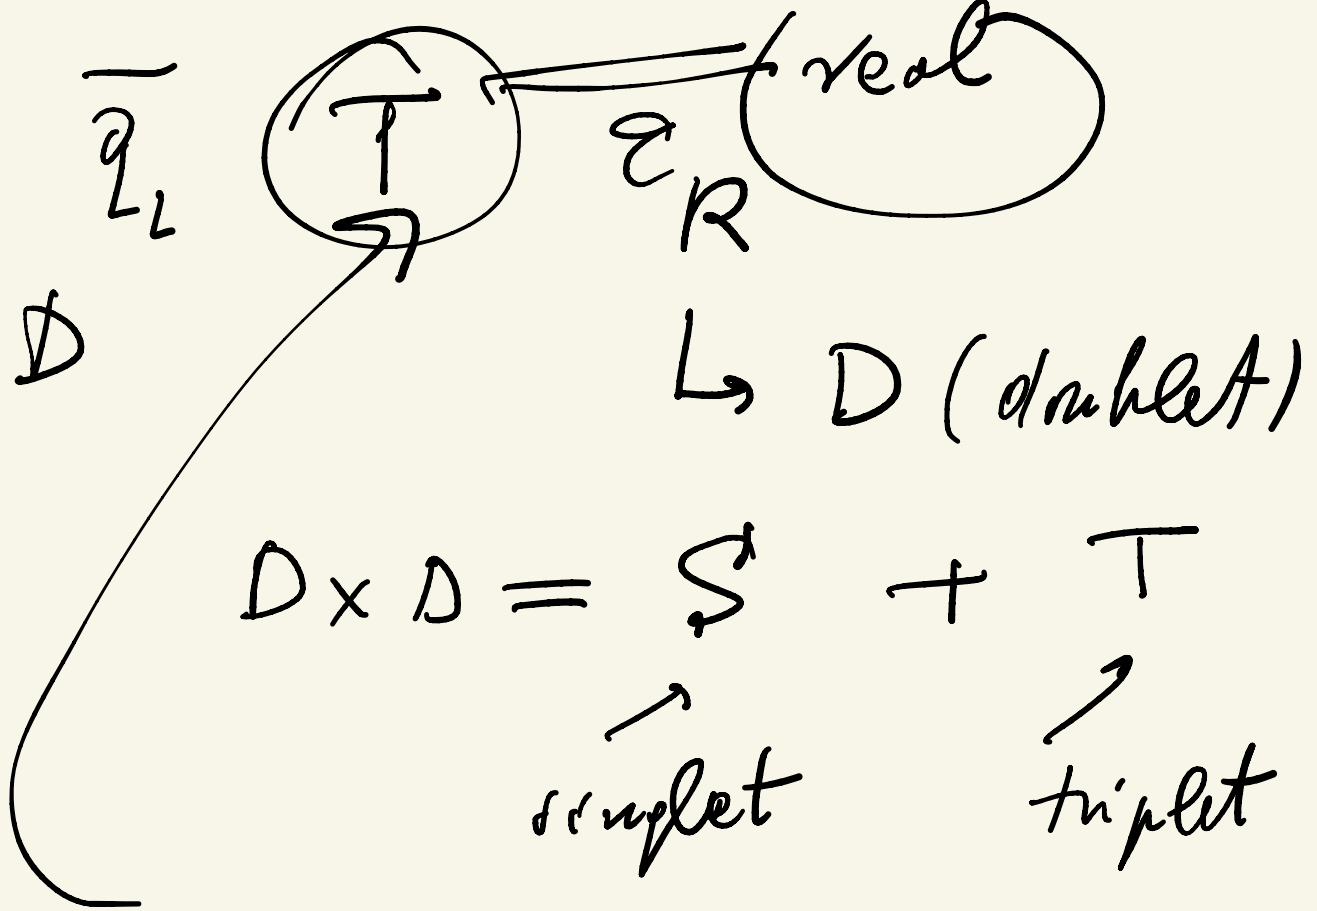 q̄_L T q_R real
D
D (doublet)
D x D = S + T
singlet triplet